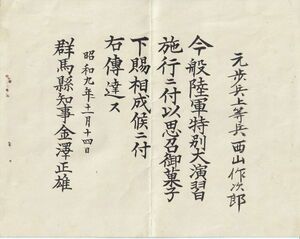 元歩兵上等兵 西山作次郎
今般陸軍特別大演習
施行ニ付以思召御菓子
下賜相成候ニ付
右傳達ス
昭和九年十一月十四日
群馬縣知事金澤正雄